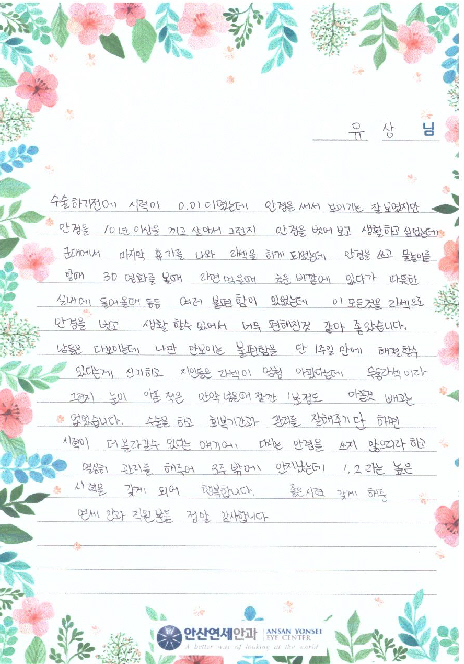 유 상 님
수술하기전에 시력이 0.01이였는데 안경을 써서 보이기는 잘보였지만
안경을 10년 이상을 끼고 살아서 그런지 안경을 벗어 보고 생활하고 싶었는데
군대에서 마지막 휴가를 나와 라섹을 하게 되었는데 안경을 쓰고
할때 3D 영화를 볼때 라면 먹을때 추운 바깥에 있다가 따뜻한
실내에 들어올때 등등 여러 불편함이 있었는데 이 모든것을 라섹으로
안경을 벗고 생활 할수 있어서 너무 편해진것 같아 좋았습니다.
남들은 다보이는데 나만 안보이는 불편함을 단 1주일 안에 해결할수
있다는게 신기하고 지인들은 라섹이 엄청 아팠다는데 수술라섹이라
그런지 눈이 아픈 것은 안약 넣을때 잠깐 1분정도 아픈것 빼고는
없었습니다. 수술을 하고 회복기간과 관리를 잘해주기만 하면
시력이 더 올라갈수 있다는 얘기에 다시는 안경을 쓰지 않으리라 하고
열심히 관리를 해주어 3주 밖에 안지났는데 1.2라는 높은
시력을 갖게 되어 행복합니다. 좋은시력 갖게 해준
연세 안과 직원분들 정말 감사합니다
안산연세안과 ANSAN YONSEI EYE CENTER
A better way of looking at the world